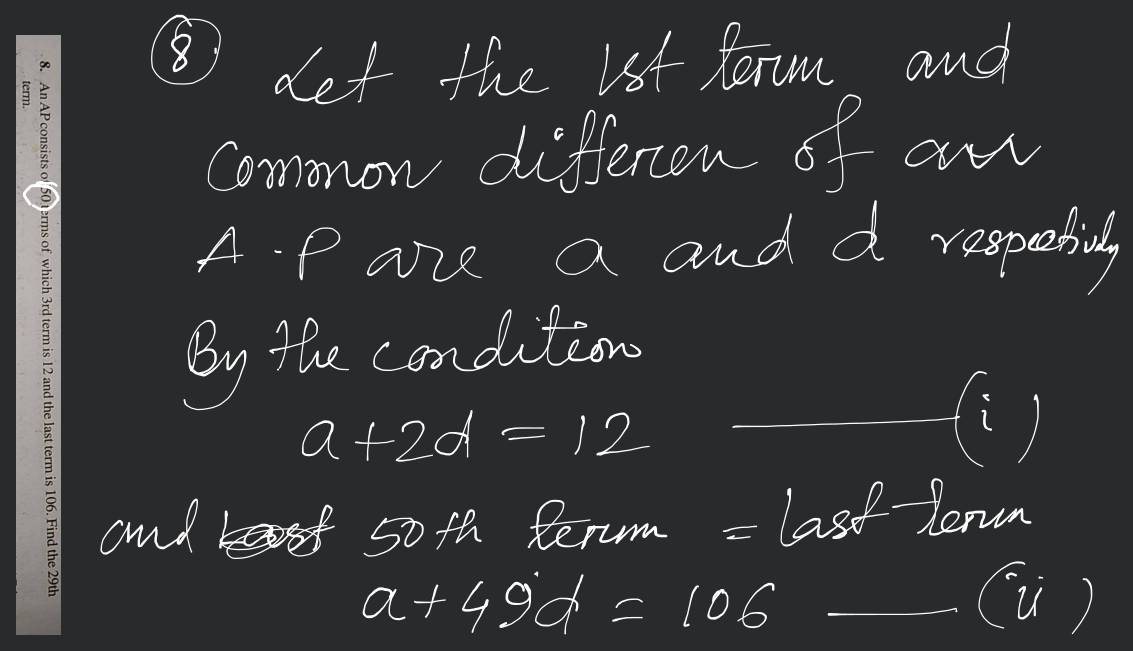 8. An AP consists of 50 terms of which 3rd term is 12 and the last term is 106. Find the 29th
term.
8.
Let the 1st term and
Common differen of an
A.P are a and d respectively
By the condition
a+2d = 12 (i)
and 50th term = last term
a+49d = 106 (ii)